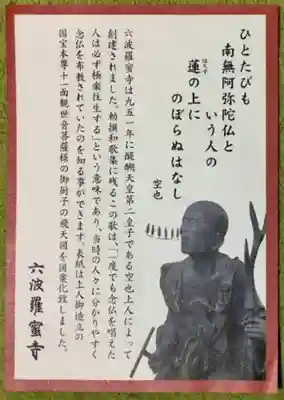 ひとたびも
南無阿弥陀仏と
いう人の
蓮の上に
のぼらぬはなし
空也
六波羅蜜寺は九五一年に醍醐天皇第二皇子である空也上人によって
創建されました。勅撰和歌集に残るこの歌は、「一度でも念仏を唱えた
人は必ず極楽往生する」という意味であり、当時の人々に分かりやすく
念仏を布教されていたのを知る事ができます。表紙は上人御造立の
国宝本尊十一面観世音菩薩様の御厨子の飛天図を図案化致しました。
六波羅蜜寺